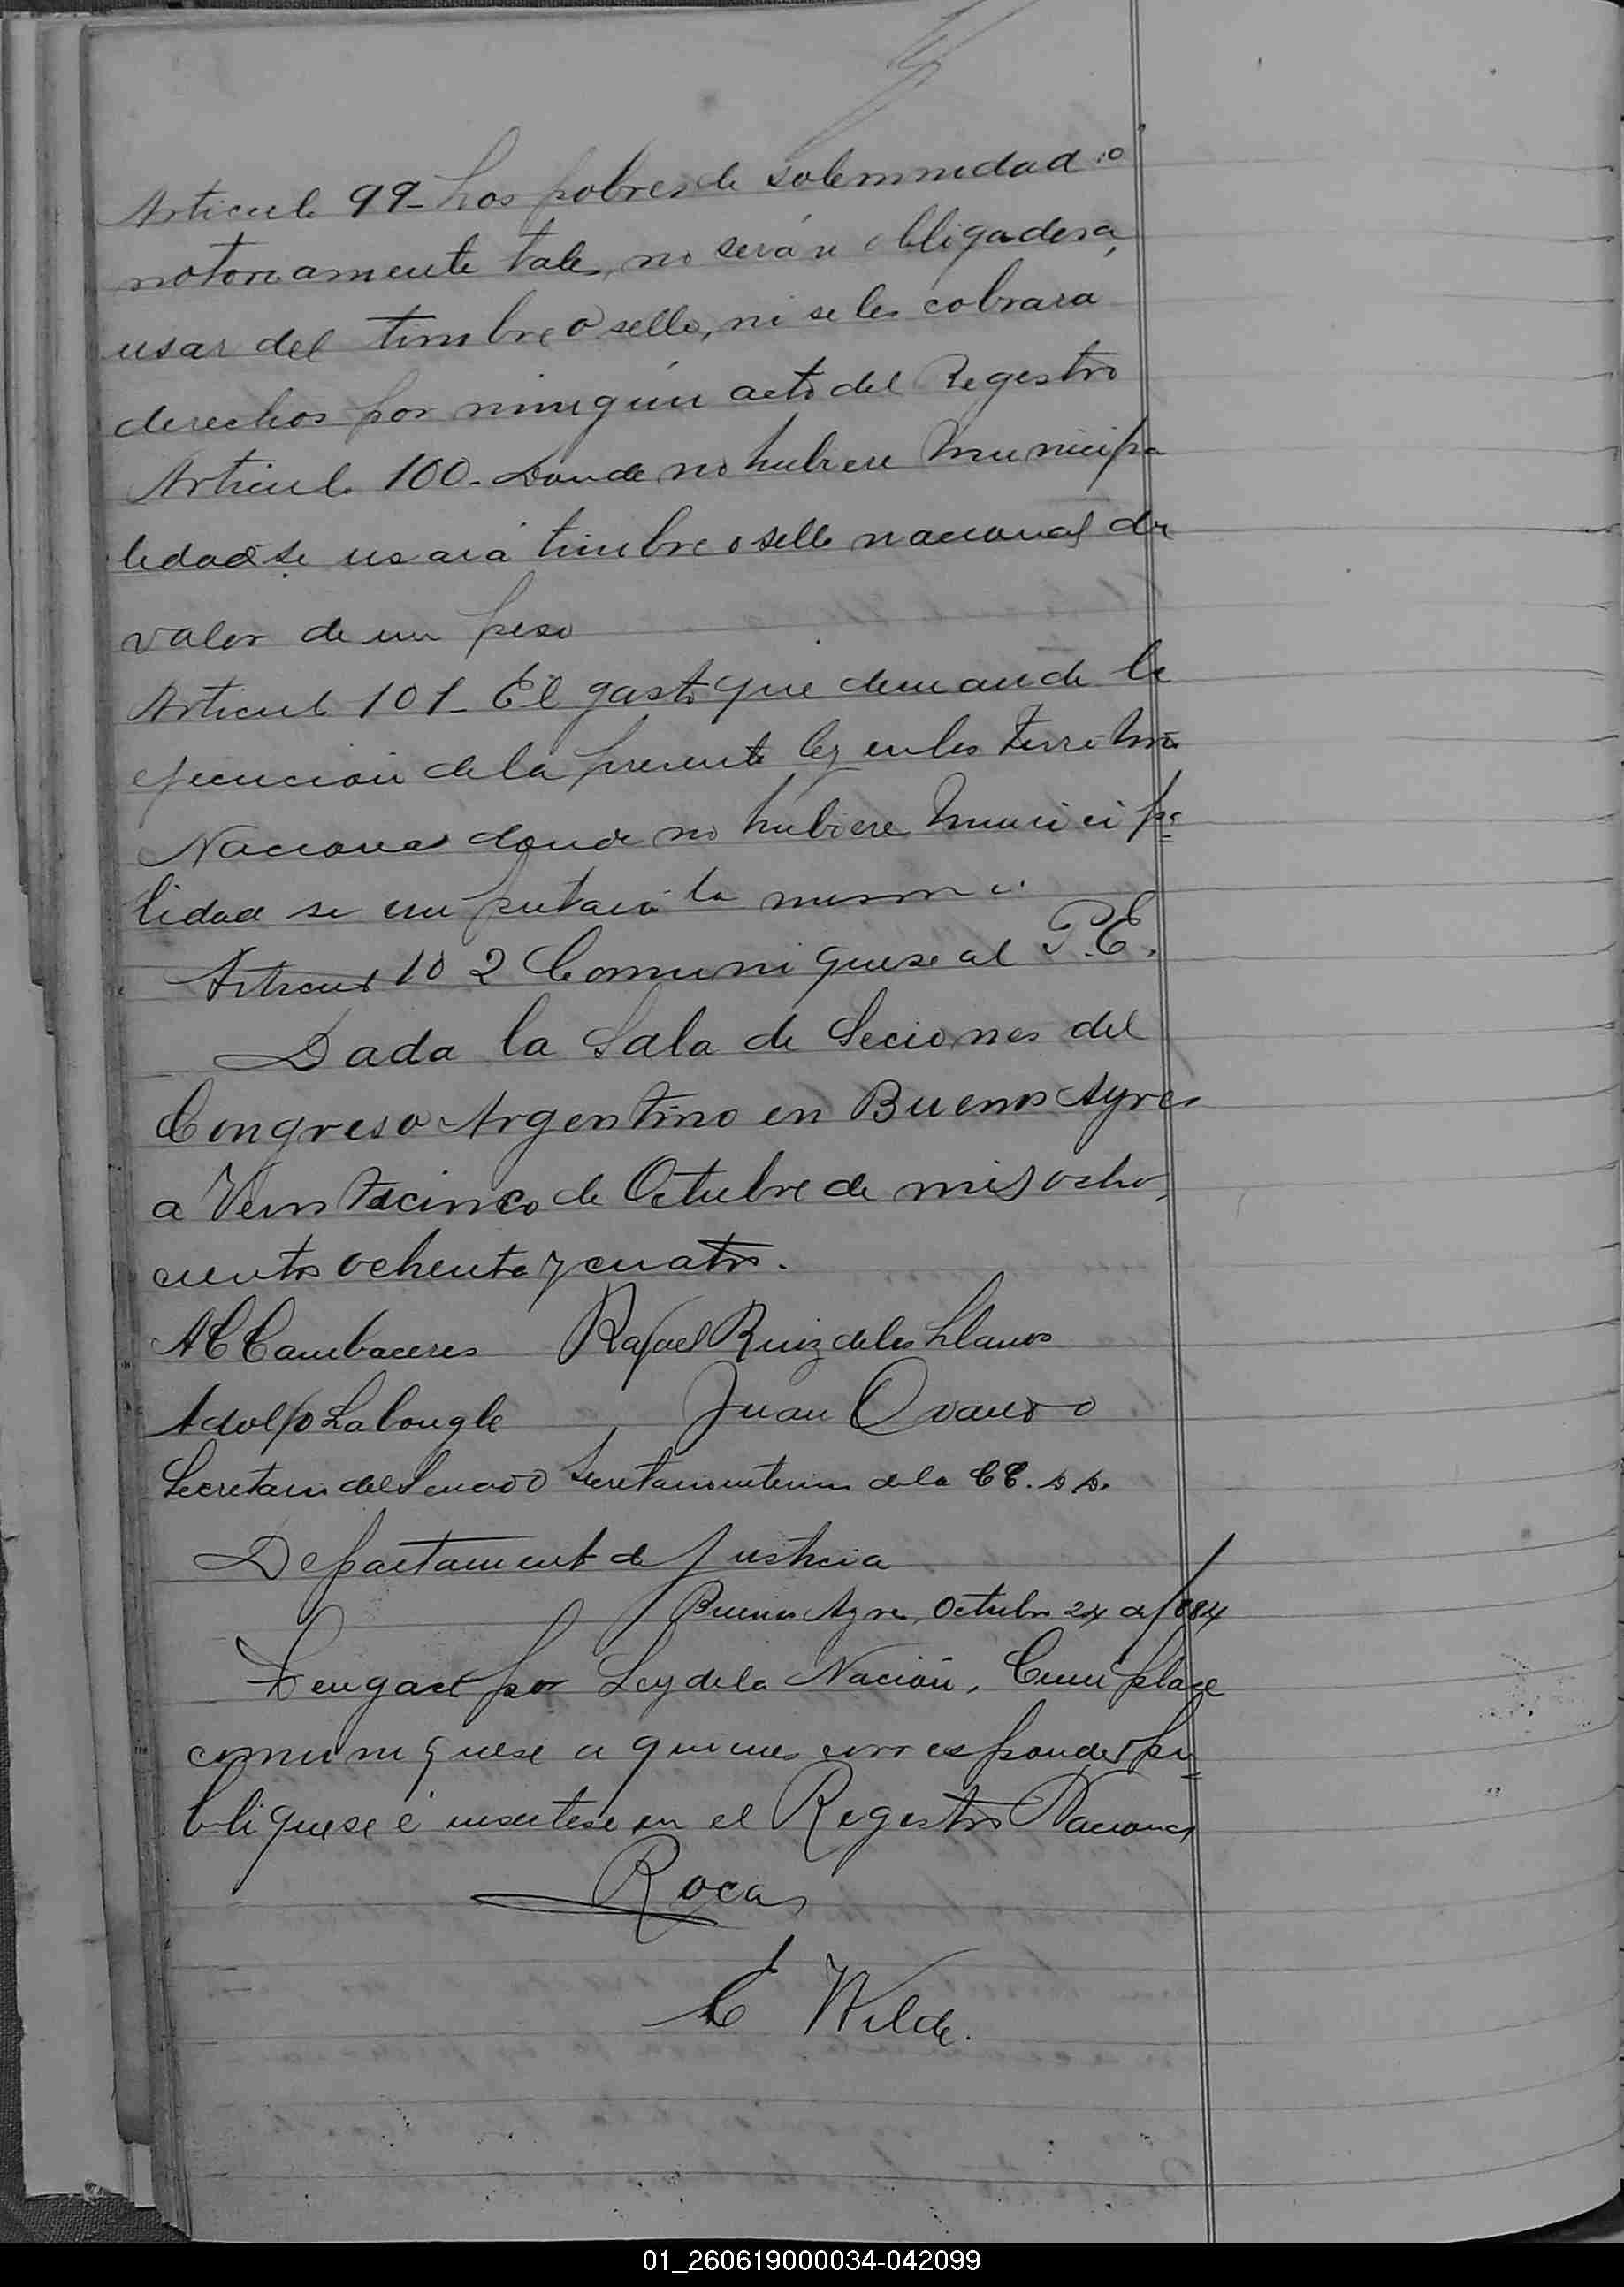 Articulo 99- Los pobres de solemnidad o
notoriamente tales, no serán obligados a
usar del timbre o sello, ni se les cobrara
derechos por ningún acto del Registro
Articulo 100- Donde no hubiere Municipa
lidad se usará timbre o sello nacional de
valor de un peso
Articulo 101- El gasto que demande la
ejecución de la presente ley en los
Nacional donde no hubiere Municipa
lidad se imputará la misma
Articulo 102 Comuniquese al P.E.
Dada la Sala de Seciones del
Congreso Argentino en Buenos Ayres
a Veinticinco de Octubre de mil ocho
cientos ochenta y cuatro.
A C Cambaceres Rafael Ruiz de los Llanos
Adolfo Labougle Juan Ovando
Secretario del Senado Secretario interino de la CC. DD.
Departamento de Justicia
Buenos Ayres, Octubre 24 de/884
Tengase por Ley de la Nación, Cumplase
comuniquese a quienes corresponde pu
bliquese é insertese en el Registro Nacional
Roca
E Wilde.
01_260619000034-042099